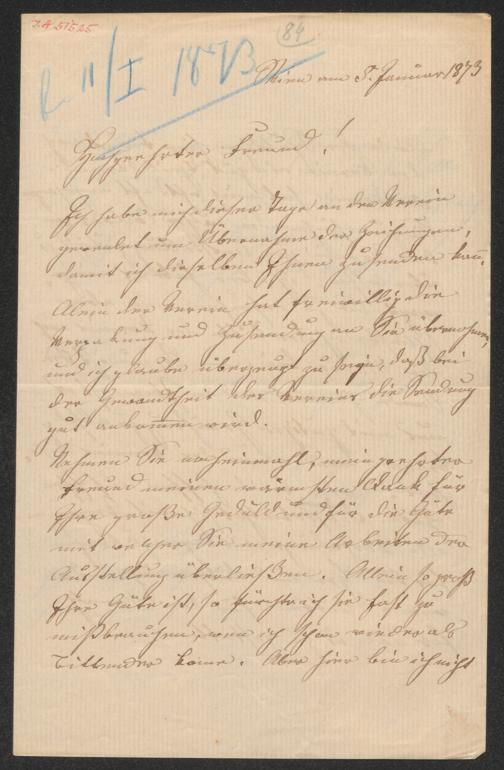 I.N. 51525
84
b 11/I 1873
Wien am 8. Januar 1873
Hochgeehrter Freund!
Ich habe mich dieser Tage an den Verein
gewendet um Übernahme der Zeichnungen,
damit ich dieselben Ihnen zusenden kann.
Alein der Verein hat freiwillig die
Verpakung und Zusendung an Sie übernohmen,
und ich glaube überzeugt zu seyn, daß bei
der Gewandtheit des Vereins die Sendung
gut ankommen wird.
Nehmen Sie nocheinmahl, mein geehrter
Freund meinen wärmsten Dank für
Ihre große Geduld und für die Güte
mit welcher Sie meine Arbeiten der
Ausstellung überließen. Allein so groß
Ihre Güte ist, so fürchte ich sie fast zu
mißbrauchen, wenn ich schon wieder als
Bittender kome. Aber hier bin ich nicht